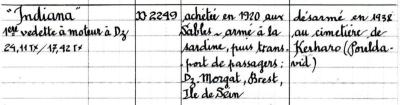 "Indiana"
1ère vedette à moteur à Dz
24,11 Tx / 17,42 Tx
D 2249
achetée en 1920 aux
Sables - armé à la
sardine, puis trans.
port de passagers;
Dz. Morgat, Brest,
Ile de Sein
désarmé en 1938
au cimetière de
Kerharo (Poulda-
vid)